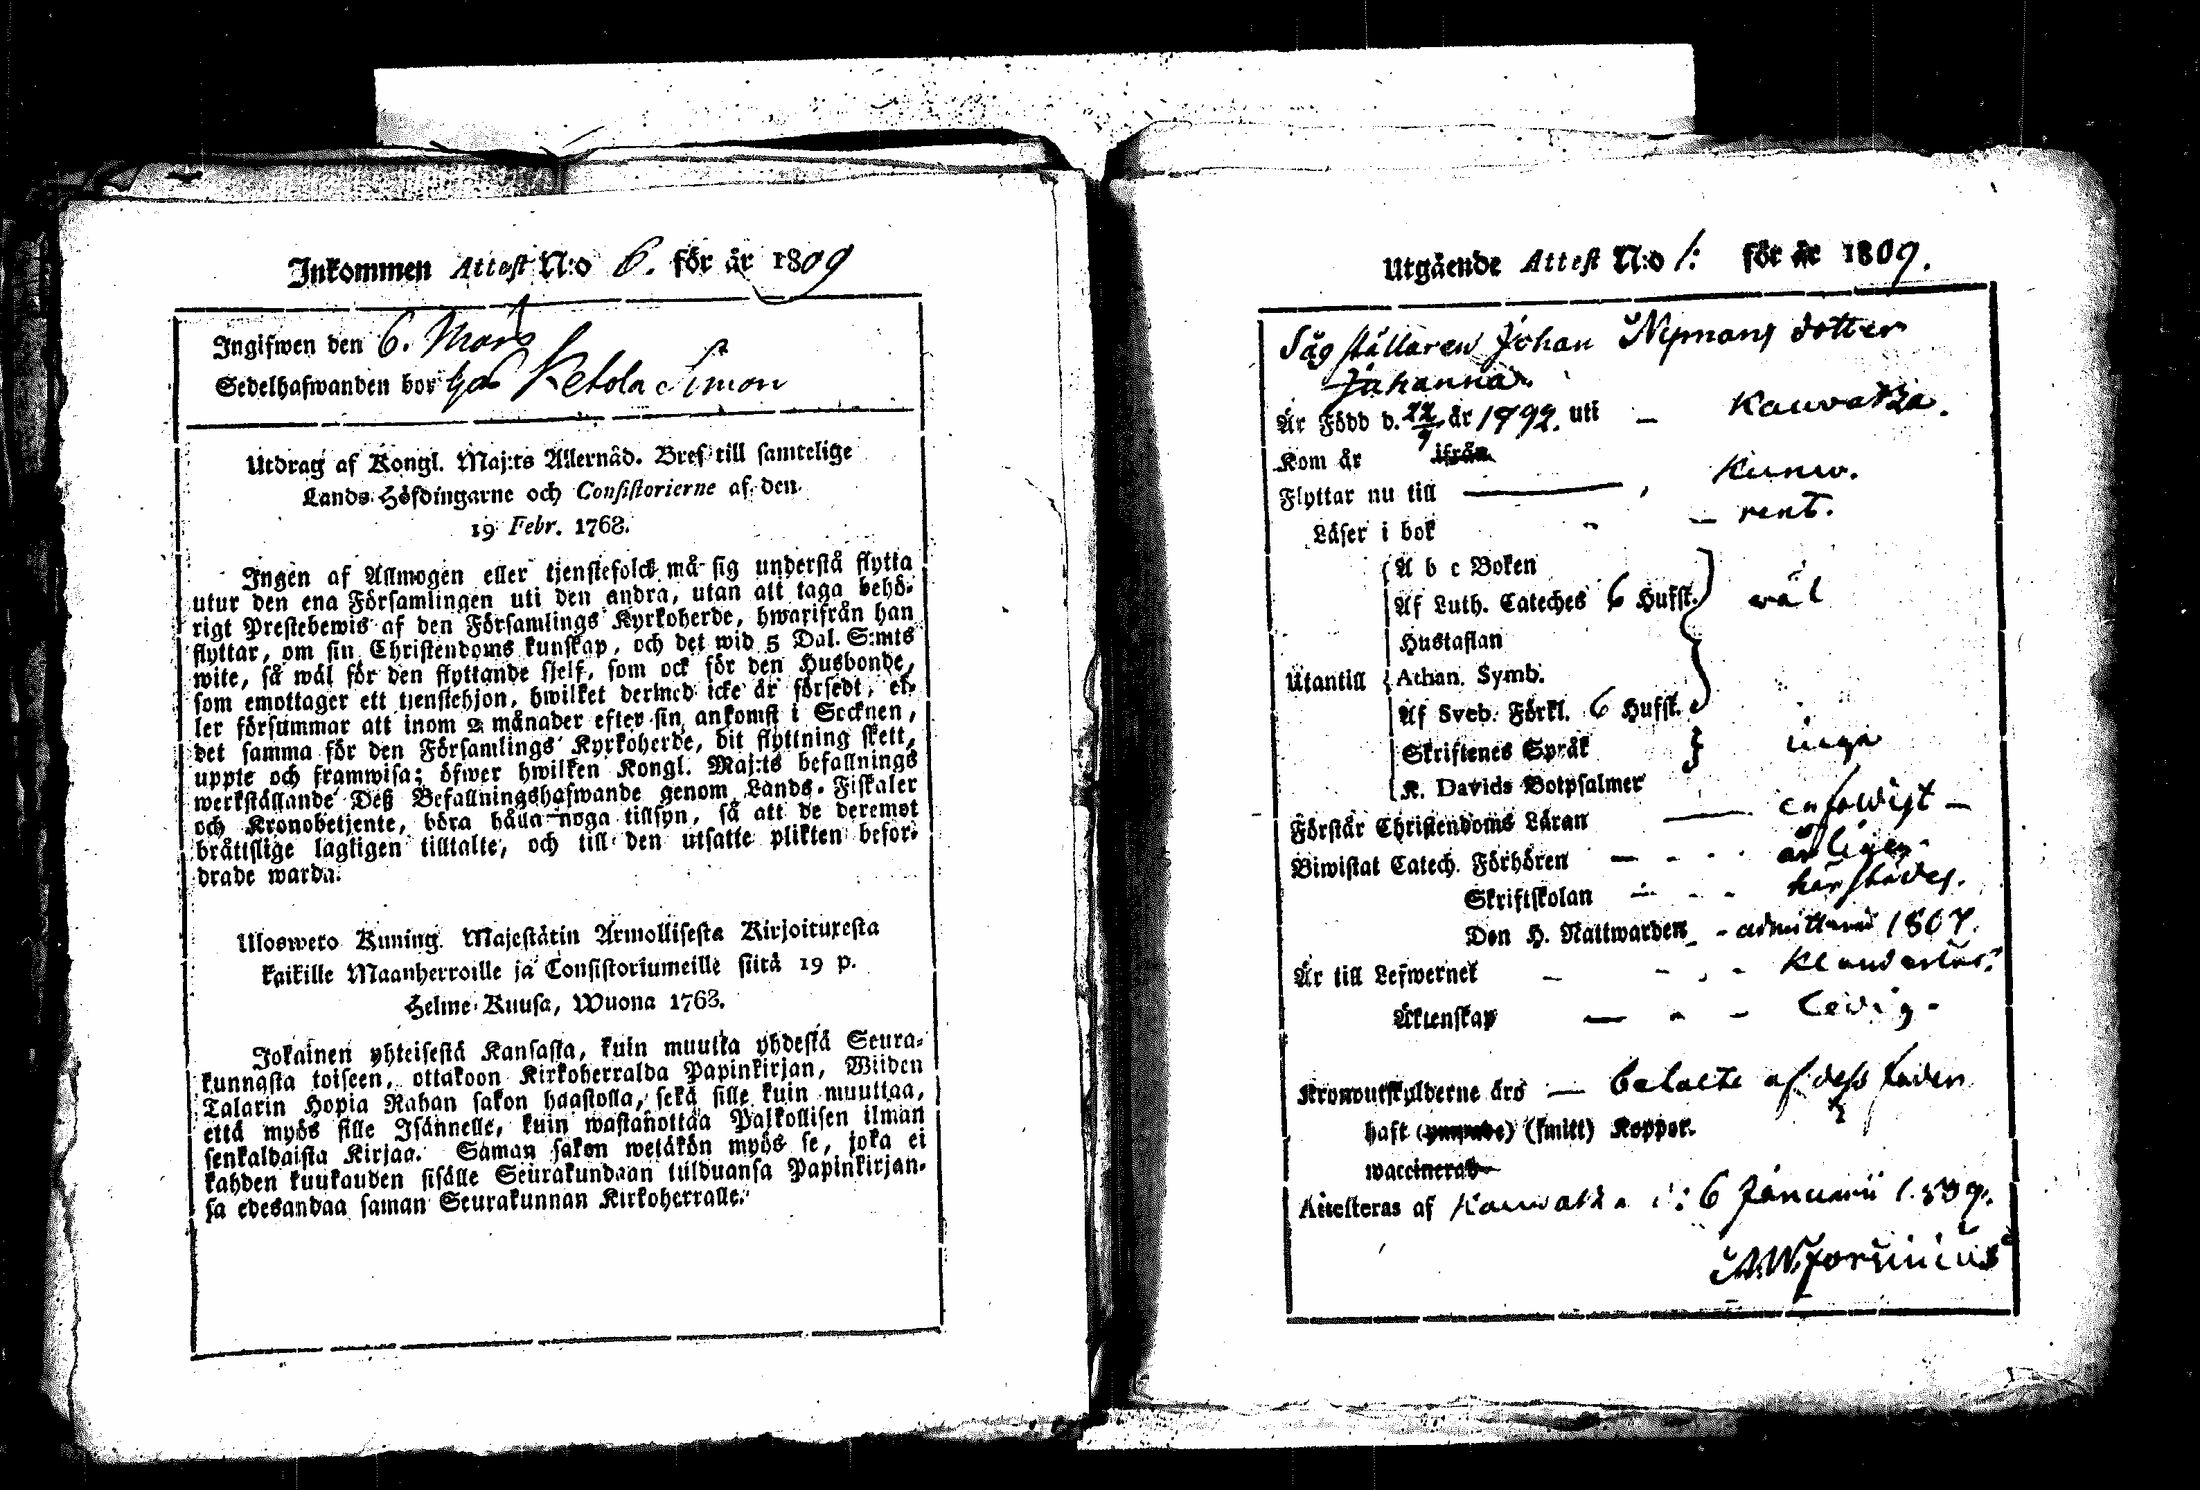 Inkommen Attest N:o 6. för år 1809
Ingifwen den 6. Mars
Sedelhafwanden bor hos Ketola Simon
Utdrag af Kongl. Maj:ts Allernåd. Bref till samtelige
Lands-Höfdingarne och Consistorierne af den
19 Febr. 1763.
Ingen af Allmogen eller tjenstefolck må sig understå flytta
utur den ena Församlingen uti den andra, utan att taga behö-
rigt Prestebewis af den Församlings Kyrkoherde, hwarifrån han
flyttar, om sin Christendoms kunskap, och det wid 5 Dal. S:mts
wite, så wäl för den flyttande sjelf, som ock för den Husbonde,
som emottager ett tjenstehjon, hwilket dermed icke är försedt, el-
ler försummar att inom 2 månader efter sin ankomst i Socknen,
det samma för den Församlings Kyrkoherde, dit flyttning skett,
uppte och framwisa; öfwer hwilken Kongl. Maj:ts befallnings
werkställande Deß Befallningshafwande genom Lands-Fiskaler
och Kronobetjente, böra hålla noga tillsyn, så att de deremot
bråttslige lagligen tilltalte, och till den utsatte plikten befor-
drade warda.
Uloswero Kuning. Majestätin Armollisesta Kirjoituxesta
kaikille Maanherroille ja Consistoriumeille siitä 19 p.
Helme-Kuusa, Wuona 1763.
Jokainen yhteisestä Kansasta, kuin muutta yhdestä Seura-
kunnasta toiseen, ottakoon Kirkoherralda Papinkirjan, Wiiden
Talarin Hopia Rahan sakon haastolla, sekä sille kuin muuttaa,
että myös sille Isännelle, kuin wastanottaa Palkollisen ilman
senkaldaista Kirjaa. Saman sakon wetäkön myös se, joka ei
kahden kuukauden sisälle Seurakundaan tulduansa Papinkirjan-
sa edesandaa saman Seurakunnan Kirkoherralle.
Utgående Attest N:o 1: för år 1809.
Sågställaren Johan Nymans dotter
Johanna.
Är Född d. 22/9 år 1792. uti – Kauvatza.
Kom år ifrån
Flyttar nu till —, Kumo.
Läser i bok – rent.
A b c Boken
Af Luth. Cateches 6 Hufst. wäl
Hustaflan
Utantill Athan. Symb.
Af Sveb. Förkl. 6 Hufst.
Skriftenes Språk inga
K. Davids Botpsalmer
Förstår Christendoms Läran — enfaldigt –
Biwistat Catech. Förhören – årligen.
Skriftskolan – härstädes.
Den H. Nattwarden – admitterad 1807.
Är till Lefwernet – klanderlös.
Äktenskap – ledig.
Kronoutskylderne äro — betalte af dess fader
haft (smitt) Koppor.
waccinerad
Attesteras af Kauvatza d: 6 Januarii 1809.